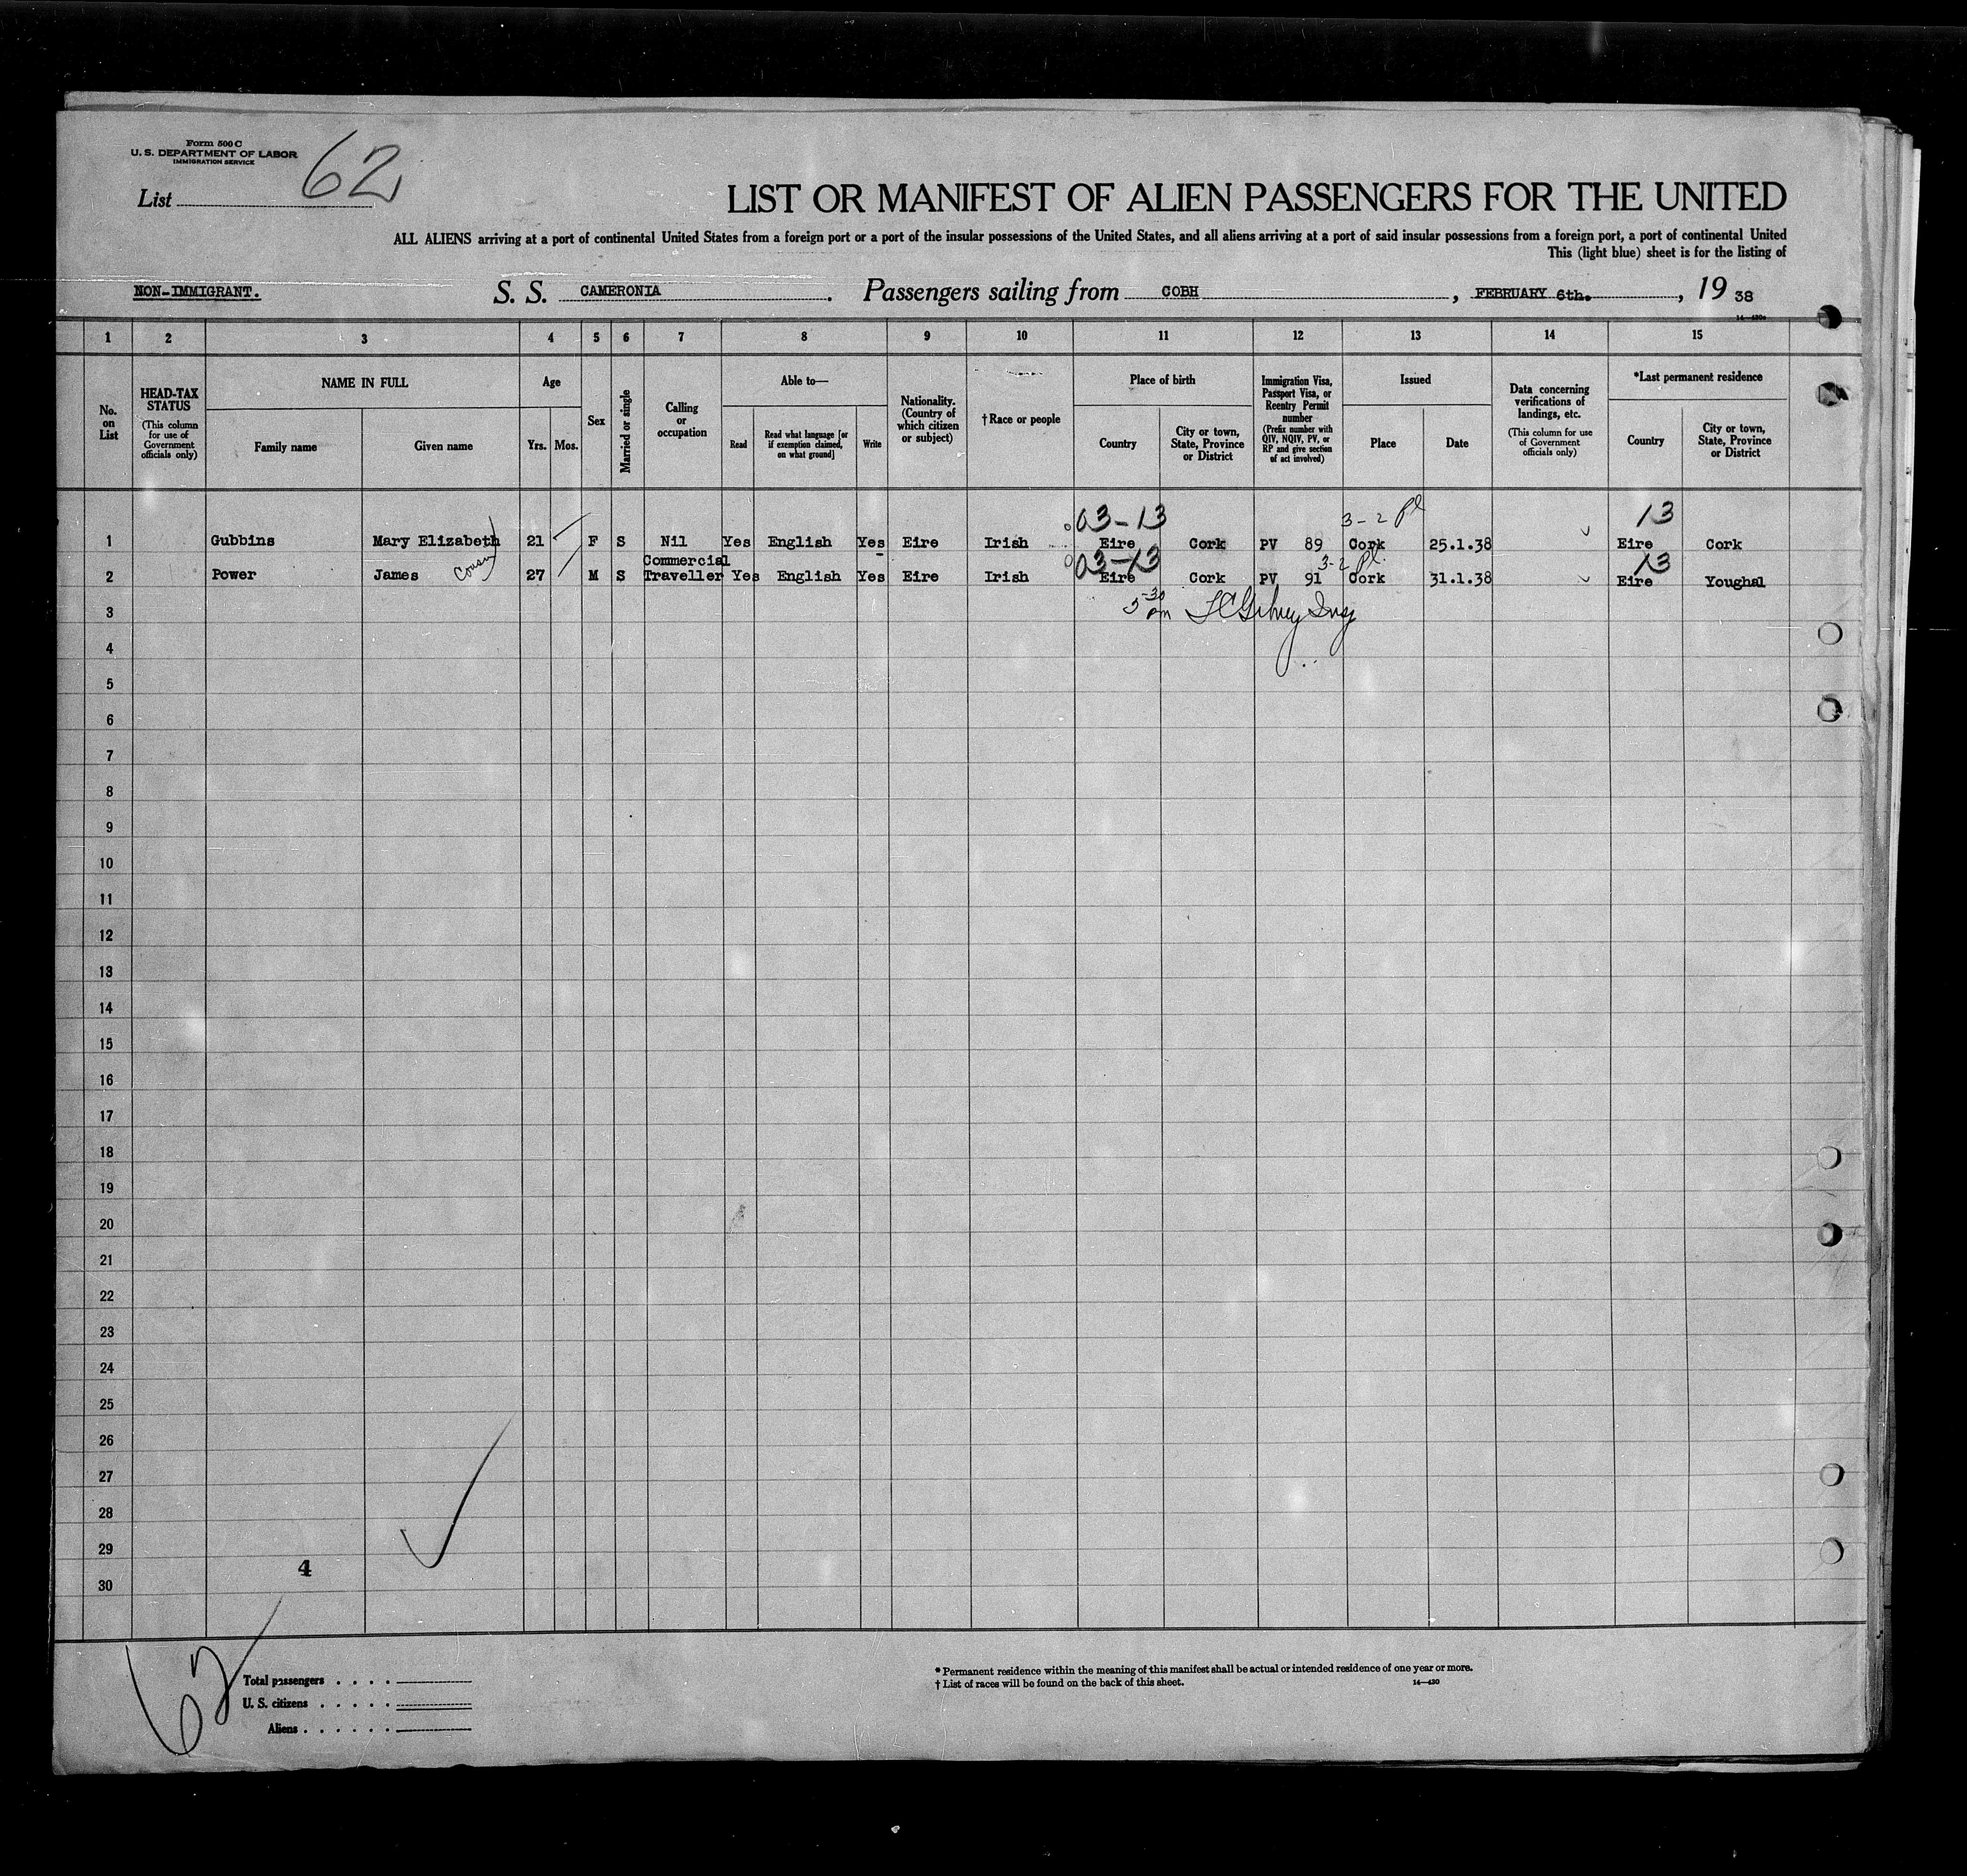 Form 500 C
U. S. DEPARTMENT OF LABOR
IMMIGRATION SERVICE
List 62
LIST OR MANIFEST OF ALIEN PASSENGERS FOR THE UNITED
ALL ALIENS arriving at a port of continental United States from a foreign port or a port of the insular possessions of the United States, and all aliens arriving at a port of said insular possessions from a foreign port, a port of continental United
This (light blue) sheet is for the listing of
NON-IMMIGRANT. S. S. CAMERONIA. Passengers sailing from COBH, FEBRUARY 6th., 19 38
1 2 3 4 5 6 7 8 9 10 11 12 13 14 15
No. on List
HEAD-TAX STATUS
(This column for use of Government officials only)
NAME IN FULL
Family name
Given name
Age
Yrs.
Mos.
Sex
Married or single
Calling or occupation
Able to—
Read
Read what language [or if exemption claimed, on what ground]
Write
Nationality. (Country of which citizen or subject)
† Race or people
Place of birth
Country
City or town, State, Province or District
Immigration Visa, Passport Visa, or Reentry Permit number
(Prefix number with QIV, NQIV, PV, or RP and give section of act involved)
Issued
Place
Date
Data concerning verifications of landings, etc.
(This column for use of Government officials only)
*Last permanent residence
Country
City or town, State, Province or District
03-13 3-2 Pl 13
1 Gubbins Mary Elizabeth 21 F S Nil Yes English Yes Eire Irish Eire Cork PV 89 Cork 25.1.38 Eire Cork
Commercial 03-13 3-2 Pl 13
2 Power James Cousin 27 M S Traveller Yes English Yes Eire Irish Eire Cork PV 91 Cork 31.1.38 Eire Youghal
3 5-30 pm
4
5
6
7
8
9
10
11
12
13
14
15
16
17
18
19
20
21
22
23
24
25
26
27
28
29
4
30
62
Total passengers
U. S. citizens
Aliens
* Permanent residence within the meaning of this manifest shall be actual or intended residence of one year or more.
† List of races will be found on the back of this sheet. 14—430